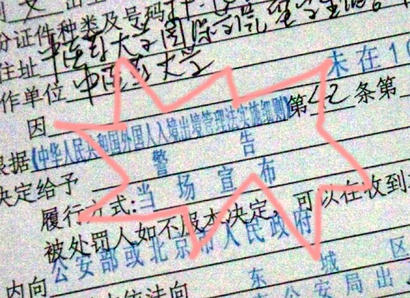 份证件种类及号码
住址 中医药大学国际学院留学生
作单位 中医药大学
因 未在1
根据《中华人民共和国外国人入境出境管理法实施细则》第42条第
决定给予 警告
履行方式: 当场宣布
被处罚人如不服本决定,可以在收到
公安部或北京市人民政府
内向 东城区
依法向 公安局出